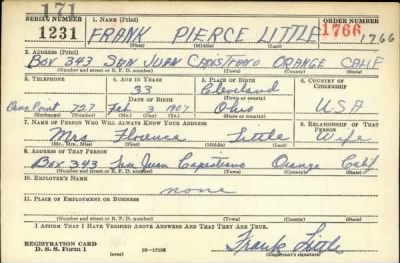 171
SERIAL NUMBER 1. NAME (Print) ORDER NUMBER
1231 FRANK PIERCE LITTLE 1766 1766
(First) (Middle) (Last)
2. ADDRESS (Print)
BOX 343 SAN JUAN CAPISTRANO ORANGE CALIF
(Number and street or R. F. D. number) (Town) (County) (State)
3. TELEPHONE 4. AGE IN YEARS 5. PLACE OF BIRTH 6. COUNTRY OF CITIZENSHIP
33 Cleveland
DATE OF BIRTH (Town or county)
727 Feb 3 1907 Ohio USA
(Exchange) (Number) (Mo.) (Day) (Yr.) (State or country)
7. NAME OF PERSON WHO WILL ALWAYS KNOW YOUR ADDRESS 8. RELATIONSHIP OF THAT PERSON
Mrs Florence Little Wife
(Mr., Mrs., Miss) (First) (Middle) (Last)
9. ADDRESS OF THAT PERSON
Box 343 San Juan Capistrano Orange Calif
(Number and street or R. F. D. number) (Town) (County) (State)
10. EMPLOYER'S NAME
none
11. PLACE OF EMPLOYMENT OR BUSINESS
(Number and street or R. F. D. number) (Town) (County) (State)
I AFFIRM THAT I HAVE VERIFIED ABOVE ANSWERS AND THAT THEY ARE TRUE.
REGISTRATION CARD
D. S. S. Form 1 (over) Frank Little
(Registrant's signature)